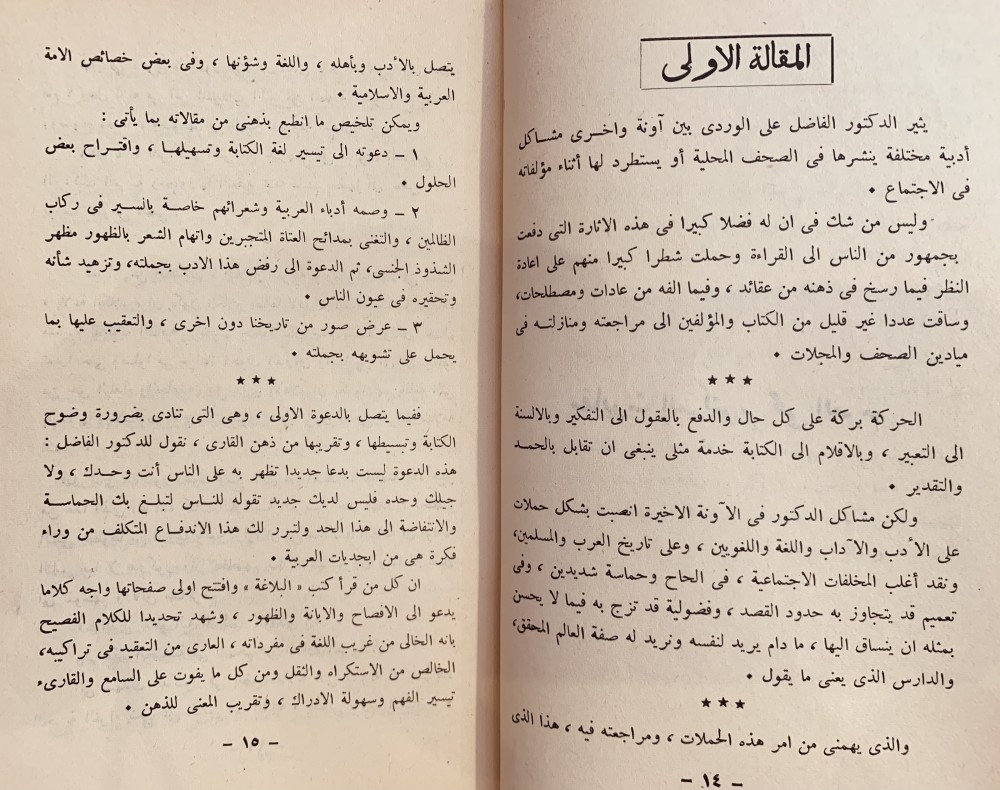 المقالة الاولى
يثير الدكتور الفاضل على الوردى بين آونة واخـرى مشـاكل
أدبية مختلفة ينشرها فى الصحف المحلية أو يستطرد لها أثناء مؤلفاته
فى الاجتماع ٠
وليس من شك فى ان له فضلا كبيرا فى هذه الاثارة التى دفعت
بجمهور من الناس الى القراءة وحملت شطرا كبيرا منهم على اعادة
النظر فيما رسخ فى ذهنه من عقائد ، وفيما الفه من عادات ومصطلحات،
وساقت عددا غير قليل من الكتاب والمؤلفين الى مراجعته ومنازلتـه فى
ميادين الصحف والمجلات ٠
★★★
الحركة بركة على كل حال والدفع بالعقول الى التفكير وبالالسنة
الى التعبير ، وبالاقلام الى الكتابة خدمة مثلى ينبغى ان تقابل بالحمـد
والتقدير ٠
ولكن مشاكل الدكتور فى الآونة الاخيرة انصبت بشكل حملات
على الأدب والآداب واللغة واللغويين ، وعلى تاريخ العرب والمسلمين،
ونقد أغلب المخلفات الاجتماعية ، فى الحاح وحماسة شديدين ، وفى
تعميم قد يتجاوز به حدود القصد ، وفضولية قد تزج به فيما لا يحسن
بمثله ان ينساق اليها ، ما دام يريد لنفسه ونريد له صفة العالم المحقق،
والدارس الذى يعنى ما يقول ٠
★★★
والذى يهمنى من امر هذه الحملات ، ومراجعته فيه ، هذا الذى
– ١٤ –
يتصل بالأدب وبأهله ، واللغة وشؤنها ، وفى بعض خصائص الامة
العربية والاسلامية ٠
ويمكن تلخيص ما انطبع بذهنى من مقالاته بما يأتى :
١ – دعوته الى تيسير لغة الكتابة وتسهيلهـا ، واقتـراح بعض
الحلول ٠
٢ – وصمه أدباء العربية وشعرائهم خاصـة بالسـير فى ركاب
الظالمين ، والتغنى بمدائح العتاة المتجبرين واتهام الشعر بالظهور مظهر
الشذوذ الجنسى، ثم الدعوة الى رفض هذا الادب بجملته، وتزهيد شأنه
وتحقيره فى عيون الناس ٠
٣ – عرض صور من تاريخنا دون اخرى ، والتعقيب عليها بما
يحمل على تشويهه بجملته ٠
★★★
ففيما يتصل بالدعوة الاولى ، وهى التى تنادى بضرورة وضوح
الكتابة وتبسيطها ، وتقريبها من ذهن القارى ، نقول للدكتور الفاضل :
هذه الدعوة ليست بدعا جديدا تظهر به على الناس أنت وحـدك ، ولا
جيلك وحده فليس لديك جديد تقوله للنـاس لتبلـغ بك الحماسـة
والانتفاضة الى هذا الحد ولتبرر لك هذا الاندفـاع المتكلف من وراء
فكرة هى من ابجديات العربية ٠
ان كل من قرأ كتب « البلاغة » وافتتح اولى صفحاتها واجه كلاما
يدعو الى الافصاح والابانة والظهور ، وشهد تحديدا للكلام الفصيح
بانه الخالى من غريب اللغة فى مفرداته ، العارى من التعقيد فى تراكيبه،
الخالص من الاستكراه والثقل ومن كل ما يفوت على السامع والقارىء
تيسير الفهم وسهولة الادراك ، وتقريب المعنى للذهن ٠
– ١٥ –